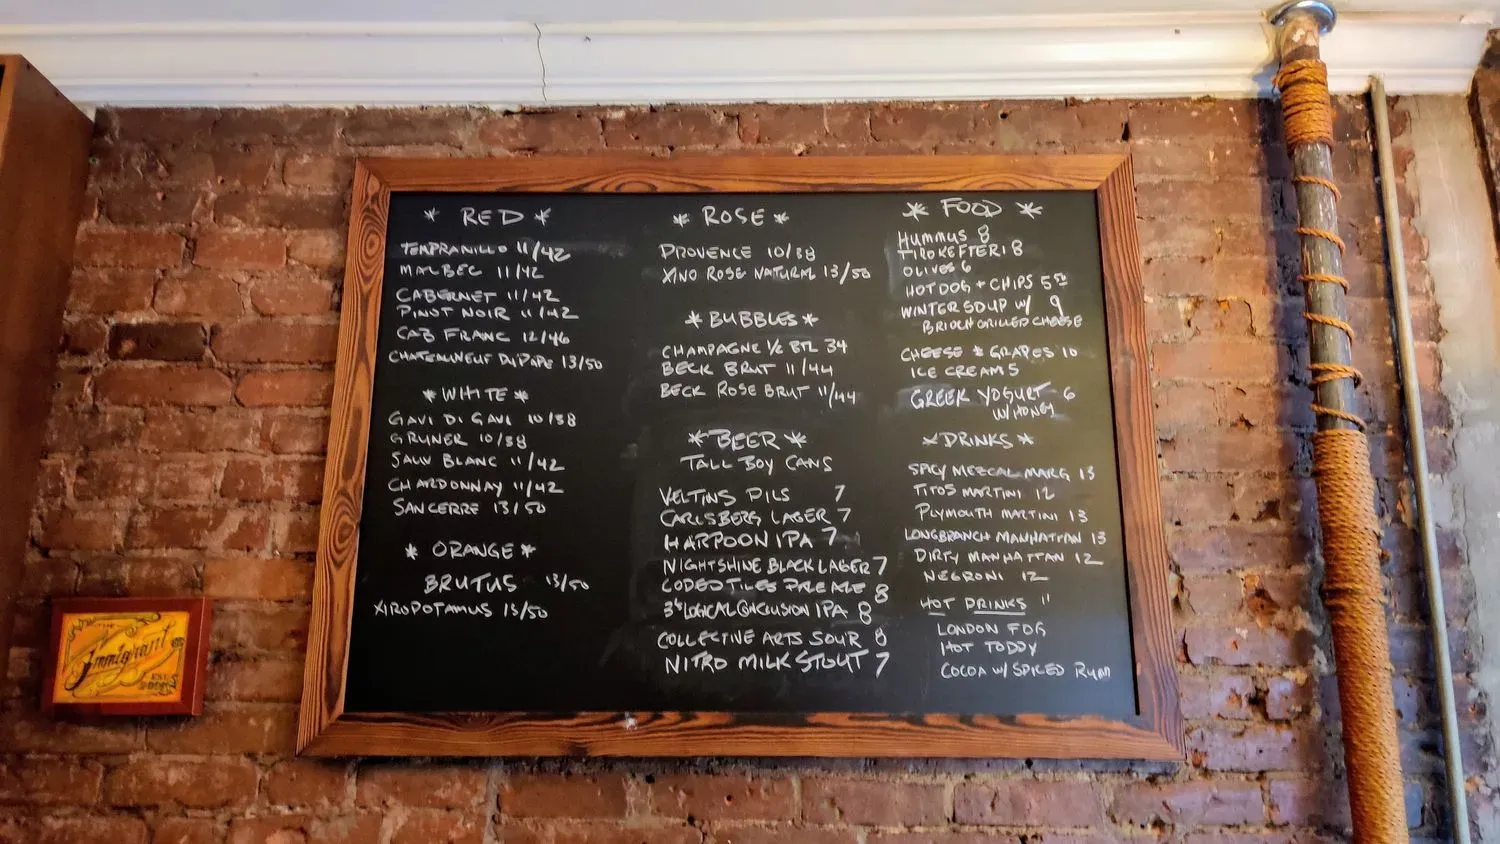 * RED *
TEMPRANILLO 11/42
MALBEC 11/42
CABERNET 11/42
PINOT NOIR 11/42
CAB FRANC 12/46
CHATEAUNEUF DU PAPE 13/50
* WHITE *
GAVI DI GAVI 10/38
GRUNER 10/38
SAUV BLANC 11/42
CHARDONNAY 11/42
SANCERRE 13/50
* ORANGE *
BRUTUS 13/50
XIROPOTAMUS 13/50
* ROSE *
PROVENCE 10/38
XINO ROSE NATURAL 13/50
* BUBBLES *
CHAMPAGNE 1/2 BTL 34
BECK BRUT 11/44
BECK ROSE BRUT 11/44
* BEER *
TALL BOY CANS
VELTINS PILS 7
CARLSBERG LAGER 7
HARPOON IPA 7
NIGHTSHINE BLACK LAGER 7
CODED TILES PALE ALE 8
3'S LOGICAL CONCLUSION IPA 8
COLLECTIVE ARTS SOUR 8
NITRO MILK STOUT 7
* FOOD *
HUMMUS 8
TIROKEFTERI 8
OLIVES 6
HOT DOG + CHIPS 5.50
WINTER SOUP W/ 9
BRIOCH GRILLED CHEESE
CHEESE & GRAPES 10
ICE CREAM 5
GREEK YOGURT 6
W/ HONEY
* DRINKS *
SPICY MEZCAL MARG 13
TITOS MARTINI 12
PLYMOUTH MARTINI 13
LONGBRANCH MANHATTAN 13
DIRTY MANHATTAN 12
NEGRONI 12
HOT DRINKS 11
LONDON FOG
HOT TODDY
COCOA W/ SPICED RUM
THE
Immigrant
EST.